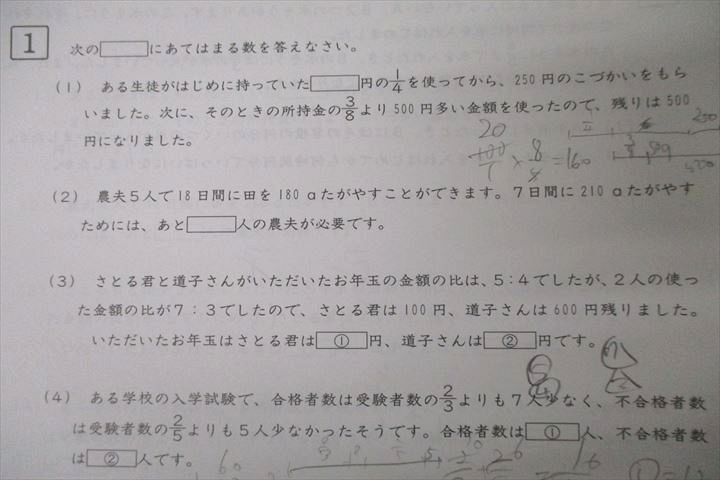 1
次の□にあてはまる数を答えなさい。
(1) ある生徒がはじめに持っていた□円の1/4を使ってから、250円のこづかいをもら
いました。次に、そのときの所持金の3/8より500円多い金額を使ったので、残りは500
円になりました。
20
100/1 × 8/4 = 160
250
(2) 農夫5人で18日間に田を180aたがやすことができます。7日間に210aたがやす
ためには、あと□人の農夫が必要です。
(3) さとる君と道子さんがいただいたお年玉の金額の比は、5:4でしたが、2人の使っ
た金額の比が7:3でしたので、さとる君は100円、道子さんは600円残りました。
いただいたお年玉はさとる君は①円、道子さんは②円です。
(4) ある学校の入学試験で、合格者数は受験者数の2/3よりも7人少なく、不合格者数
は受験者数の2/5よりも5人少なかったそうです。合格者数は①人、不合格者数
は②人です。
60